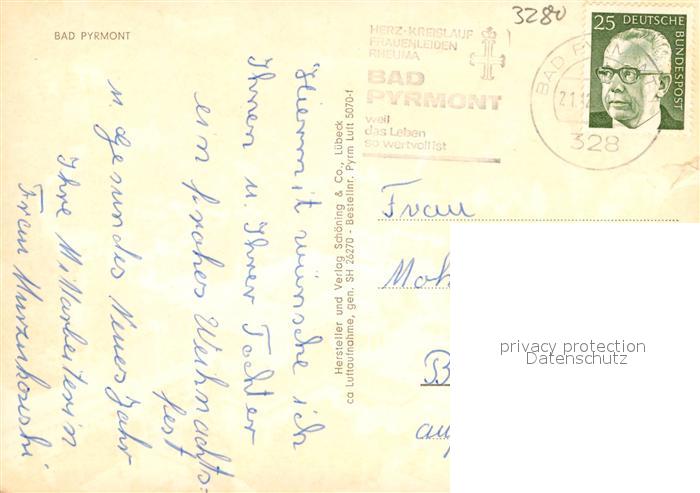 BAD PYRMONT
Hiermit wünsche ich
Ihnen u. Ihrer Tochter
ein frohes Weihnachts=
fest
u. gesundes Neues Jahr
Ihre Mittarbeiterin
Frau
Hersteller und Verlag Schöning & Co., Lübeck
ca Luftaufnahme, gen. SH 26270 - Bestellnr. Pyrm Luft 5070-f
3280
HERZ-KREISLAUF
FRAUENLEIDEN
RHEUMA
BAD
PYRMONT
weil
das Leben
so wertvoll ist
BAD
328
25 DEUTSCHE
BUNDESPOST
Frau
Moh
B
auf
privacy protection
Datenschutz